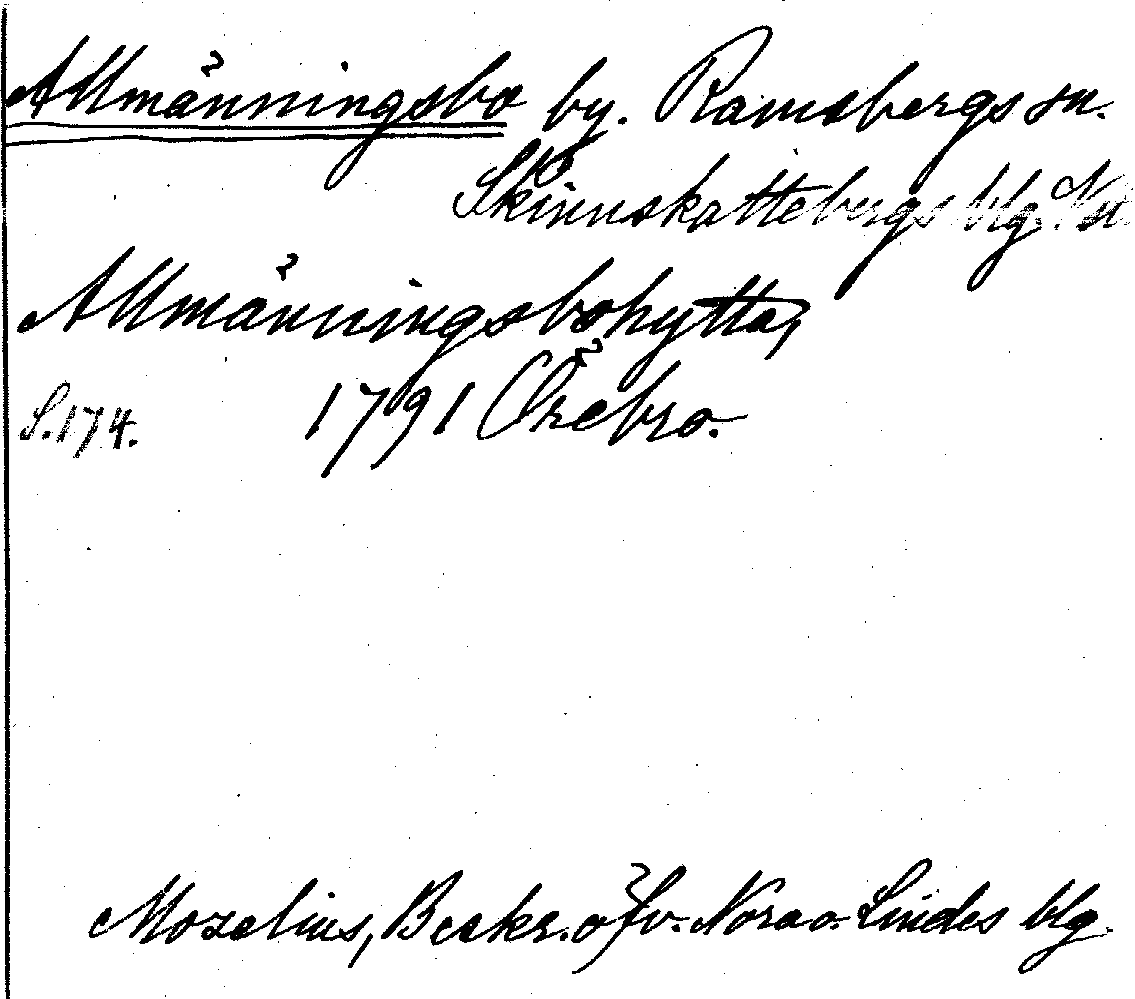 Allmänningsbo by. Ramsbergs sn.
Skinnskattebergs blg.
Allmänningsbohytta,
S.174. 1791 Örebro.
Mozelius, Beskr. öfv. Nora o. Lindes blg.